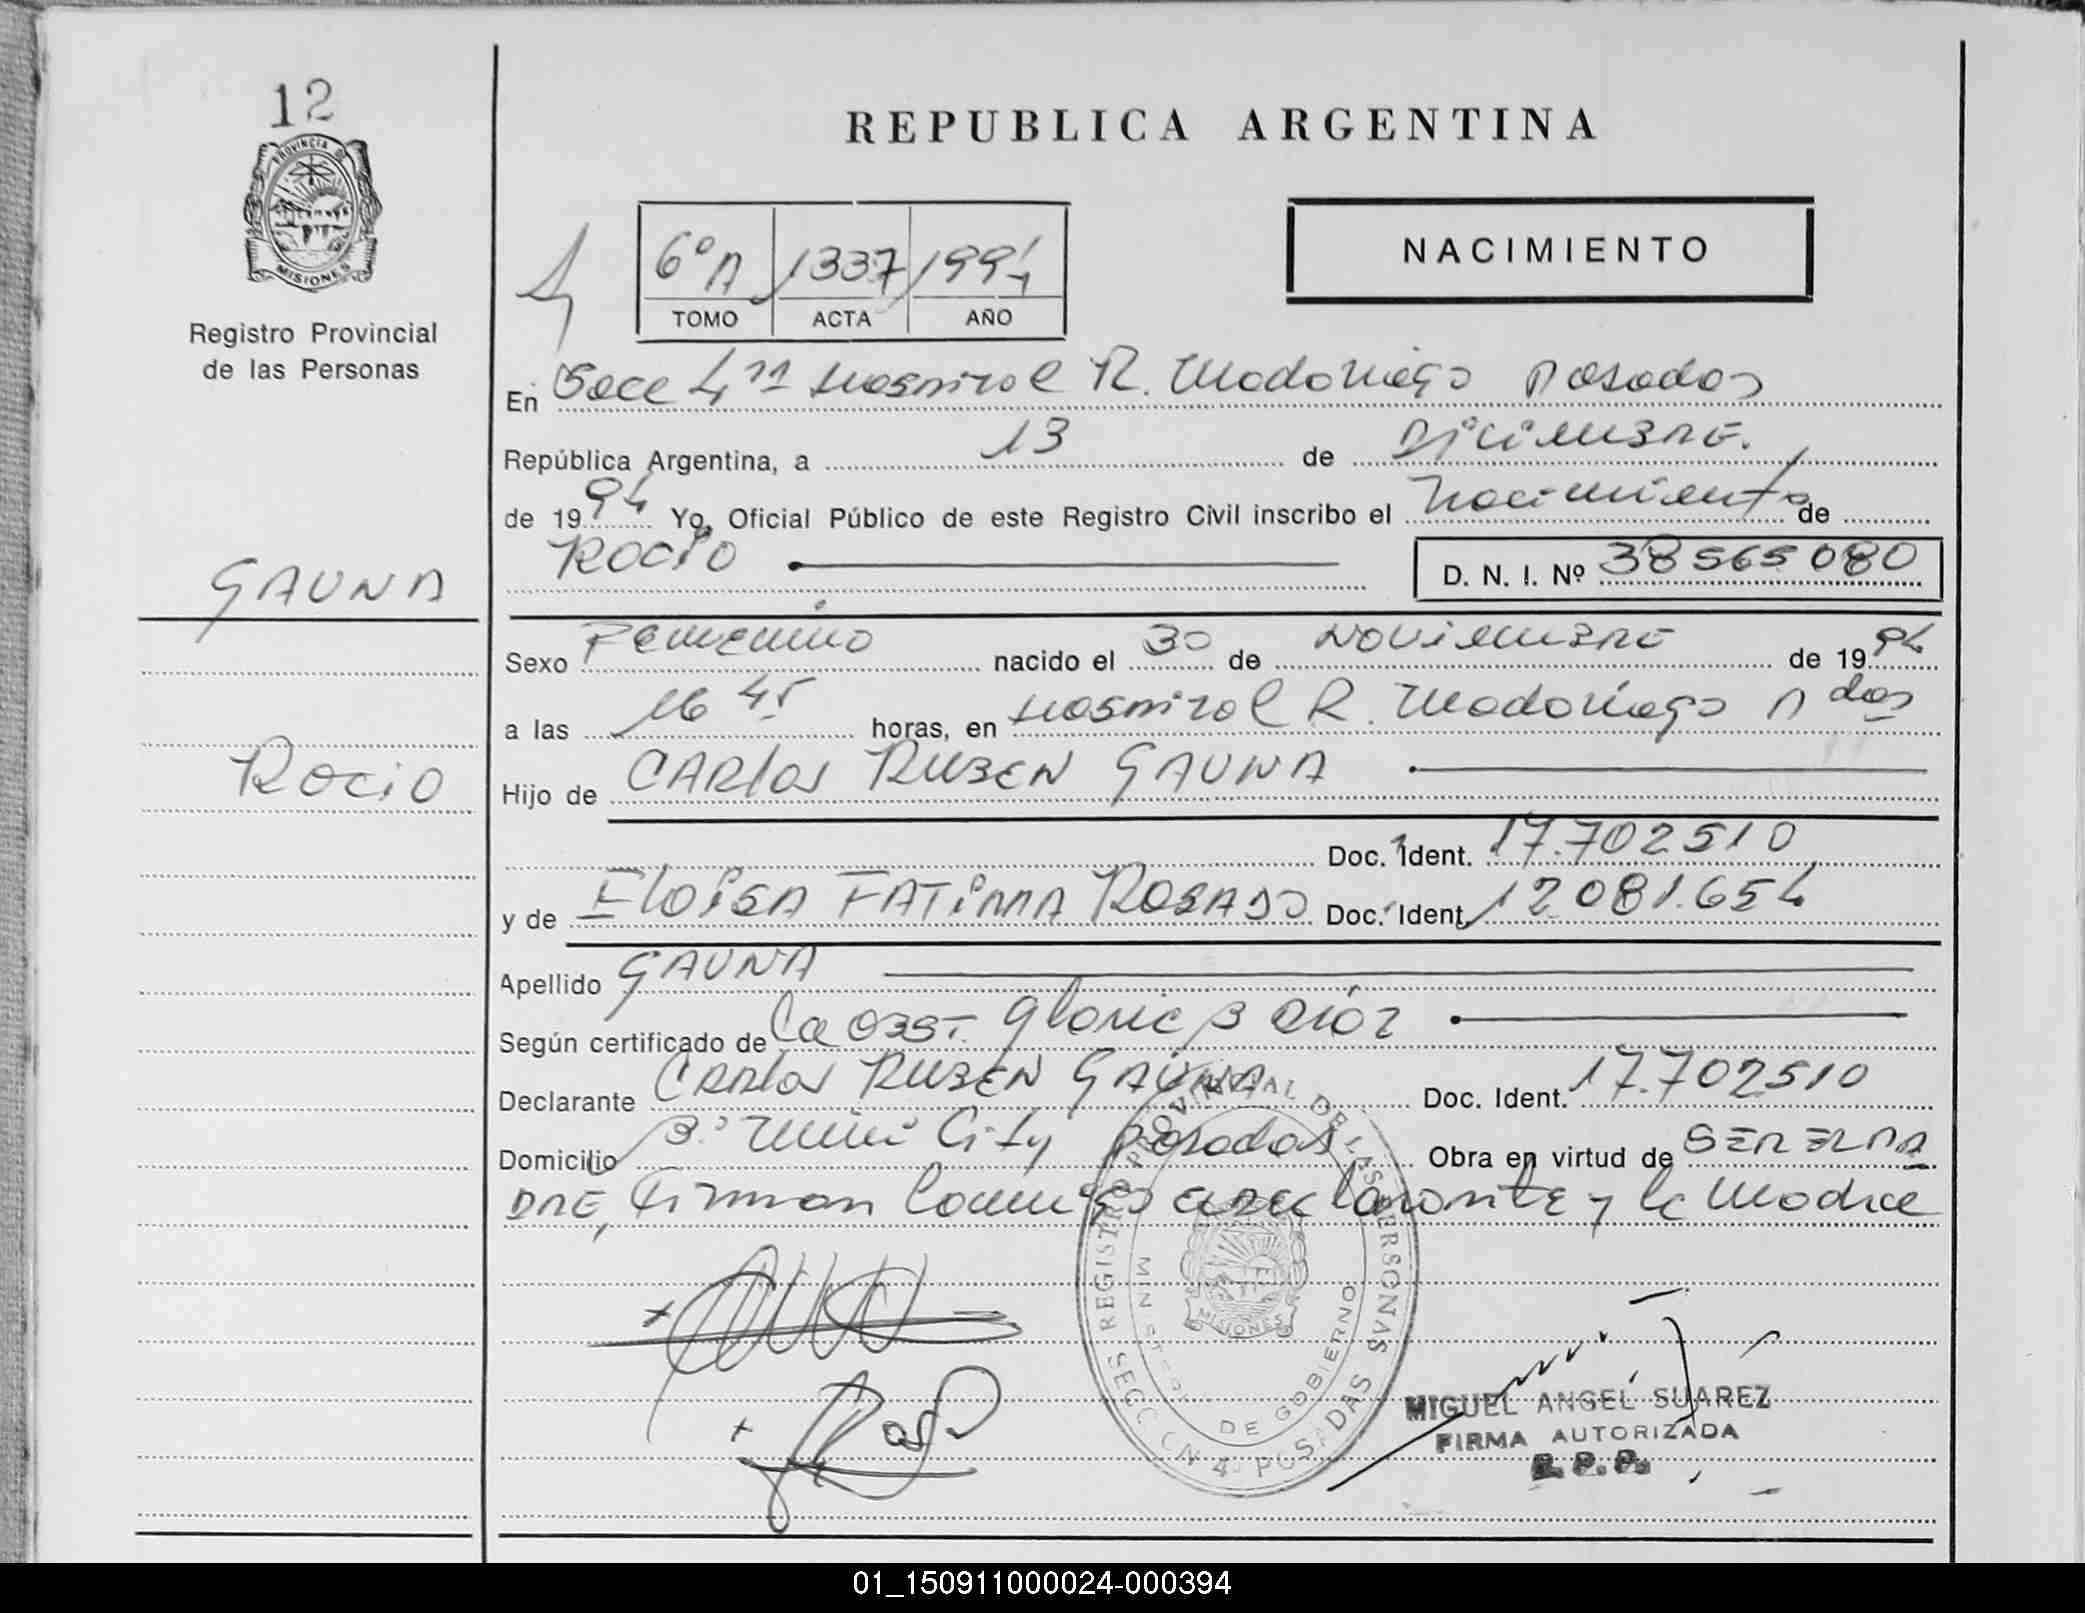 12
PROVINCIA DE
MISIONES
Registro Provincial
de las Personas
REPUBLICA ARGENTINA
NACIMIENTO
6º A 1337 1994
TOMO ACTA AÑO
En Secc 4ª Hospital R. Madariaga Posadas
República Argentina, a 13 de Diciembre.
de 1994 Yo, Oficial Público de este Registro Civil inscribo el nacimiento de
ROCIO
D. N. I. Nº 38565080
GAUNA
Sexo Femenino nacido el 30 de Noviembre de 1994
a las 16 45 horas, en Hospital R. Madariaga Pdas
ROCIO
Hijo de CARlos RUBEN GAUNA
Doc. Ident. 17.702510
y de ELOISA FATIMA ROSADO Doc. Ident. 12.081.654
Apellido GAUNA
Según certificado de la Obst. Gloria B Diaz
Declarante CARlos RUBEN GAUNA Doc. Ident. 17.702510
Domicilio Bº Mini City Posadas Obra en virtud de SER EL PA
DRE, Firman Conmigo declarante y la Madre
REGISTRO PROVINCIAL DE LAS PERSONAS
MINISTERIO DE GOBIERNO
MISIONES
SECCION 4ª POSADAS
MIGUEL ANGEL SUAREZ
FIRMA AUTORIZADA
R. P. P.
01_150911000024-000394